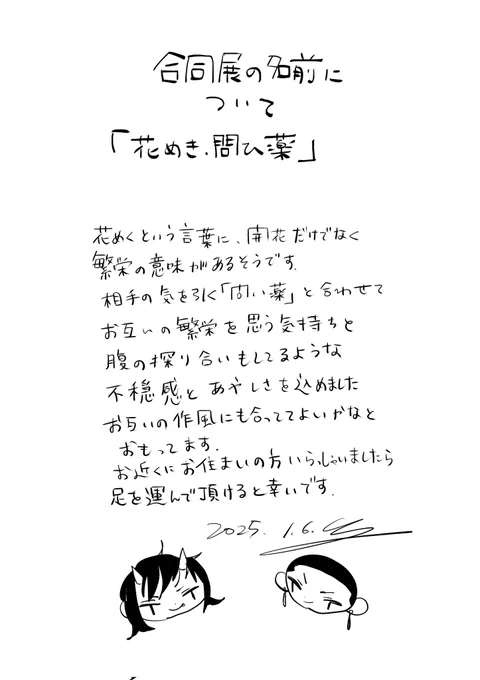 合同展の名前に
ついて
「花めき、問ひ薬」
花めくという言葉に、開花だけでなく
繁栄の意味があるそうです.
相手の気を引く「問い薬」と合わせて
お互いの繁栄を思う気持ちと
腹の探り合いもしてるような
不穏感と あやしさを込めました
お互いの作風にも合っててよいかなと
おもってます.
お近くにお住まいの方いらっしゃいましたら
足を運んで頂けると幸いです.
2025. 1.6.